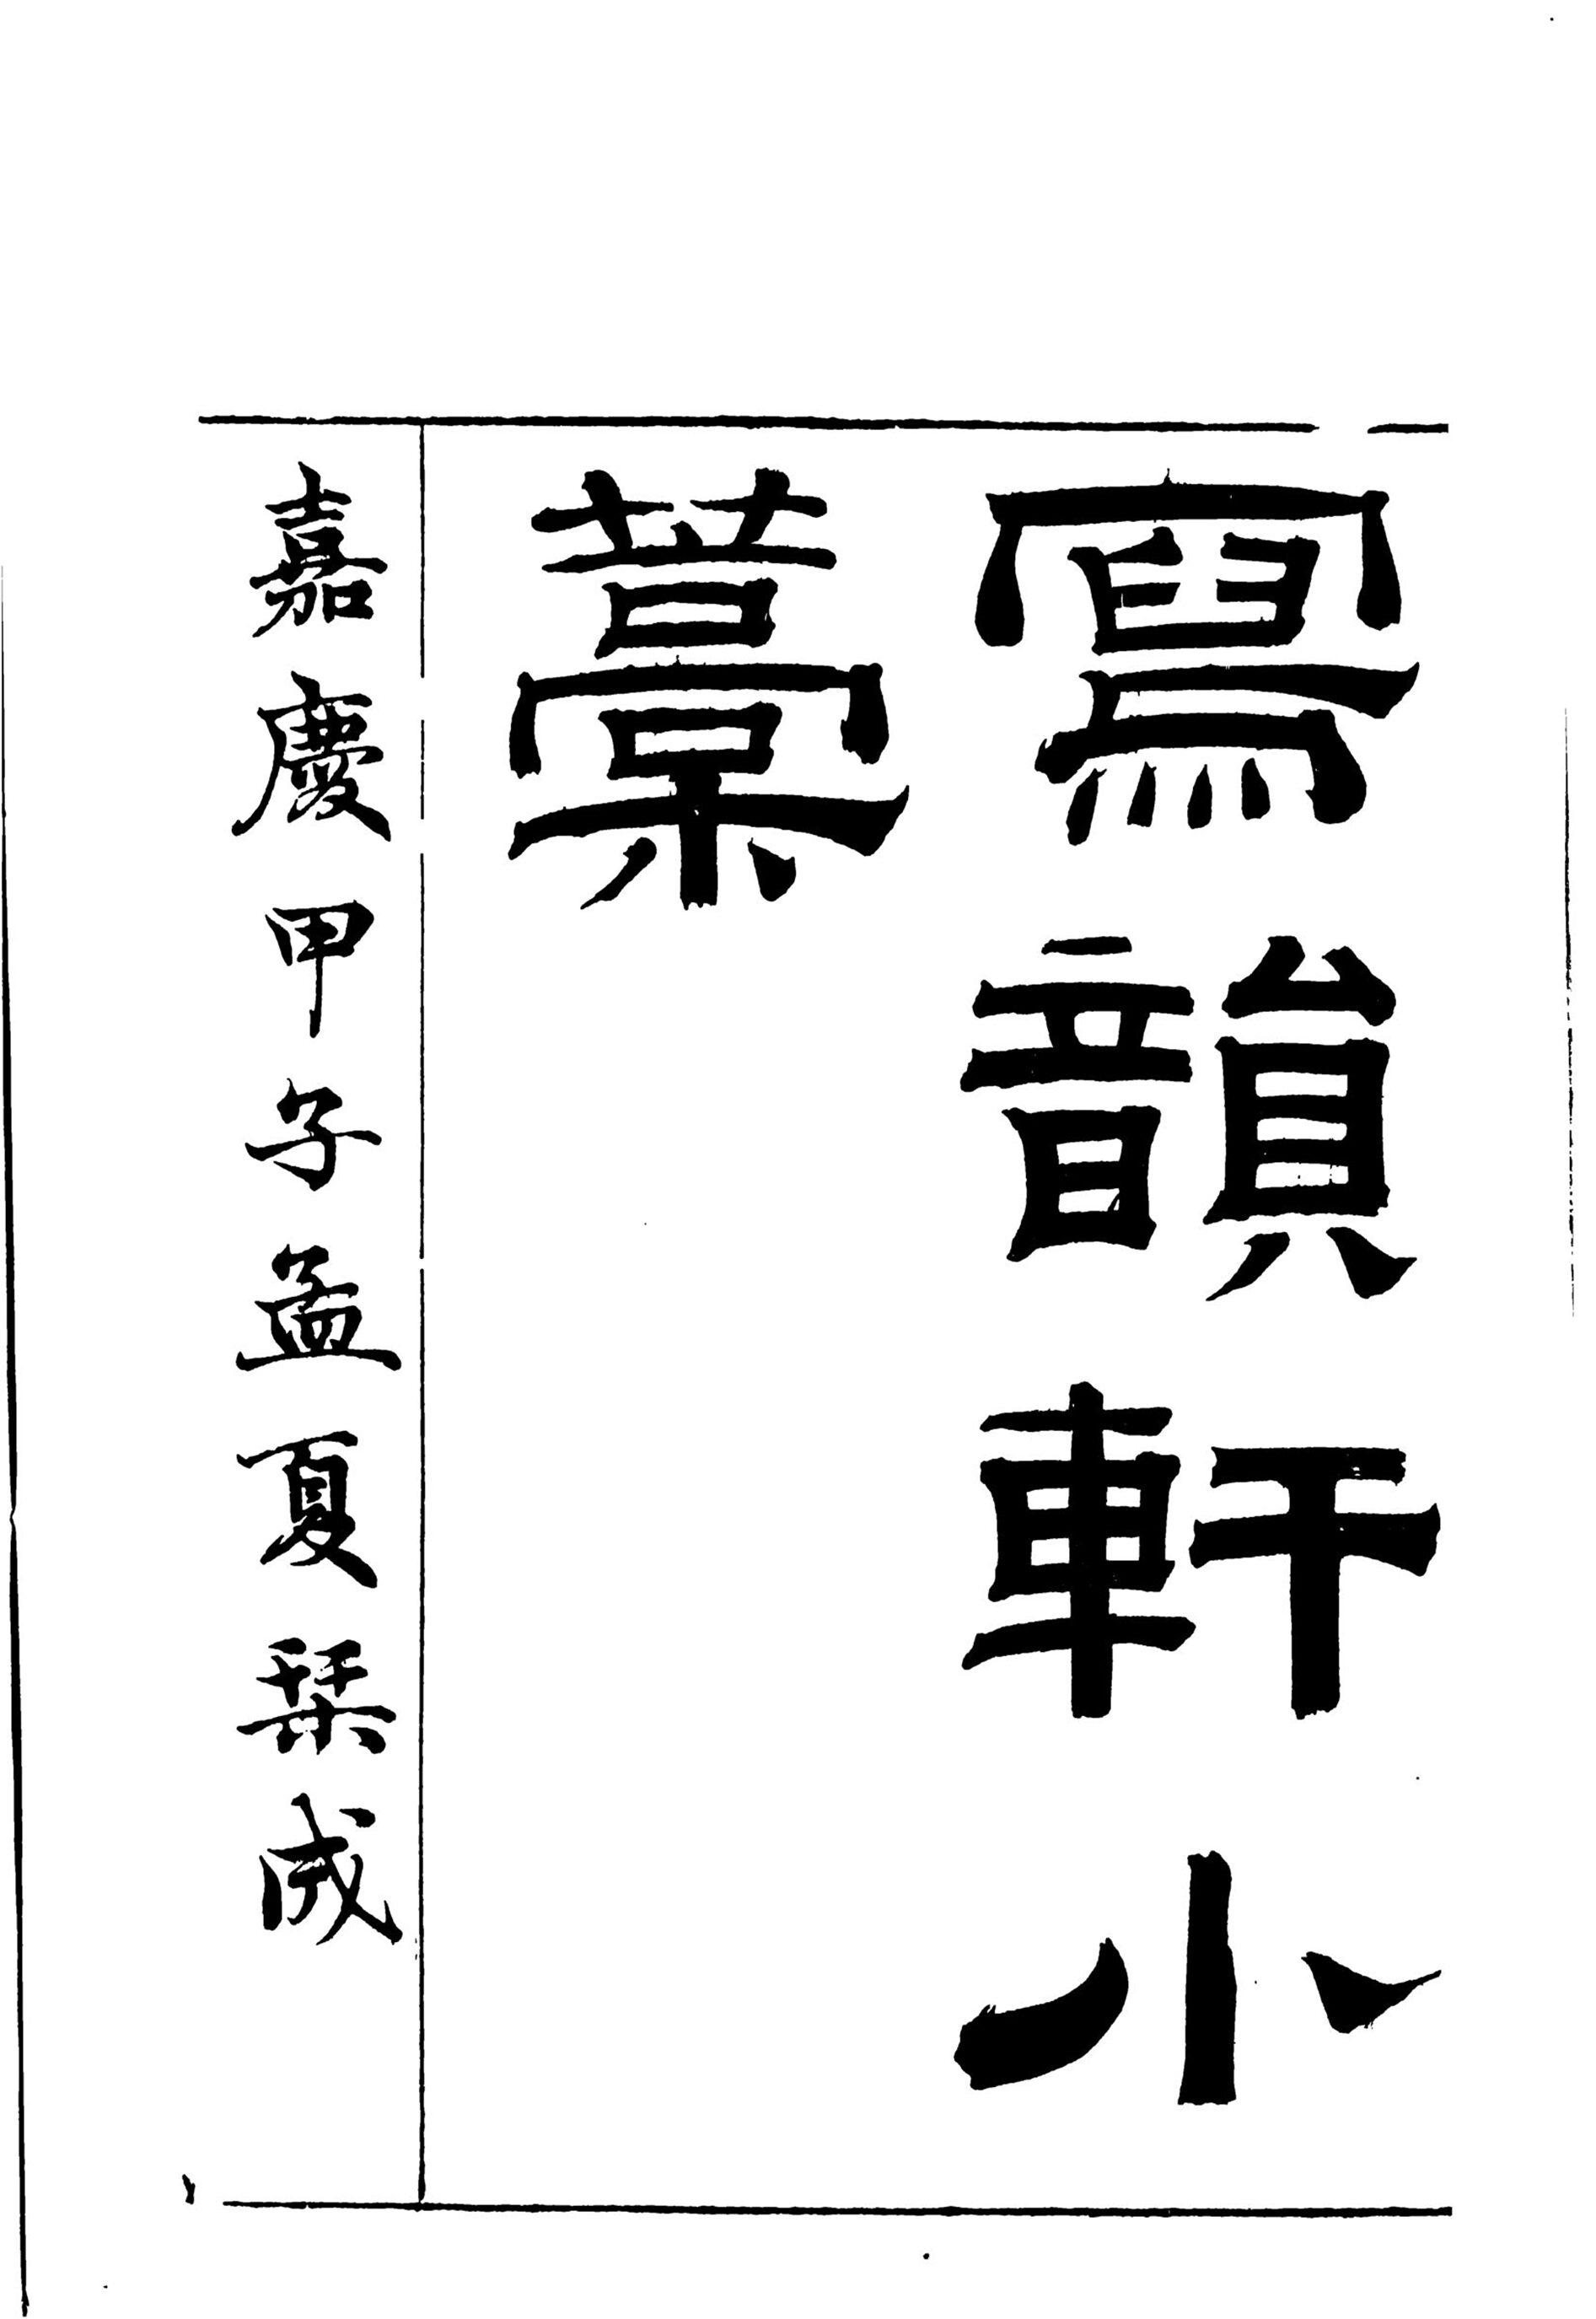 寫韻軒小
藁
嘉慶甲子孟夏栞成